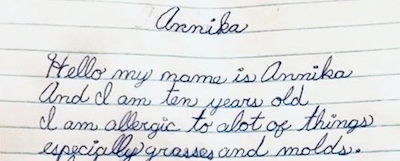 Annika
Hello my name is Annika
And I am ten years old
I am allergic to alot of things
especially grasses and molds.